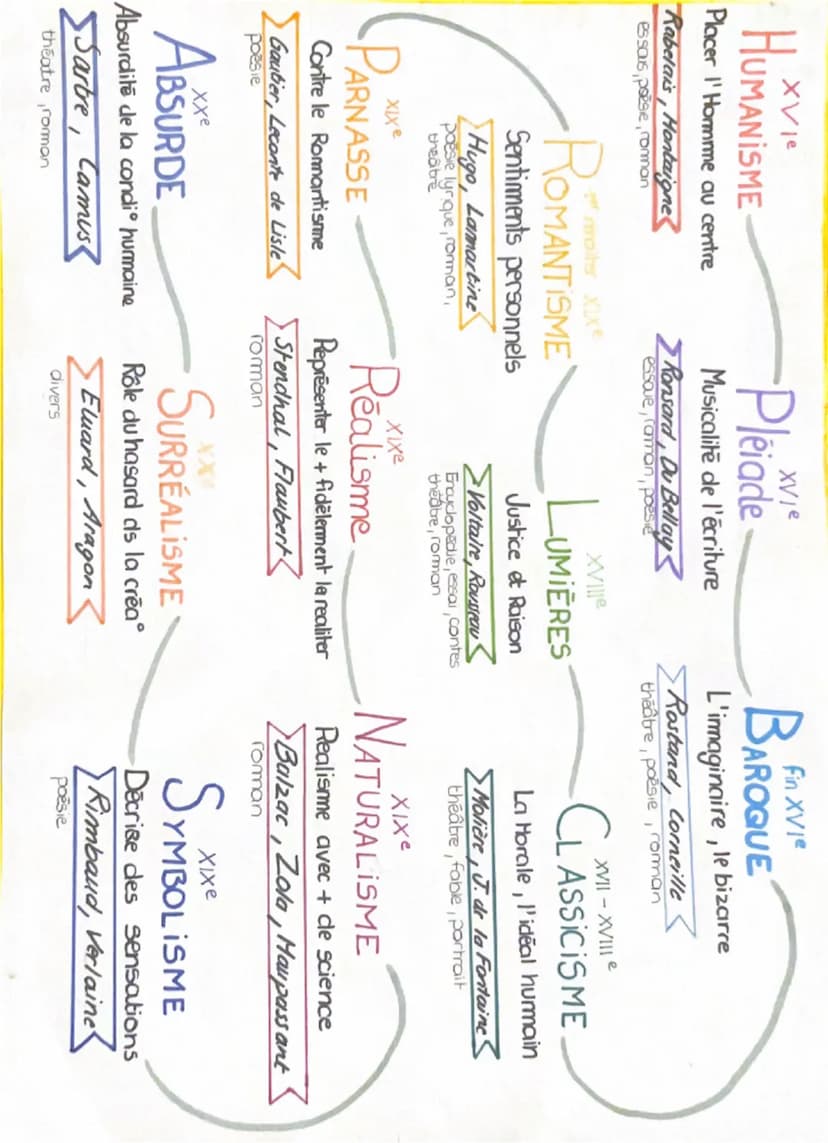 XVIe
HUMANISME
Placer l'Homme au centre
Rabelais, Montaigne
essais, poésie, roman
XVIe
Pléiade
Musicalité de l'écriture
Ronsard, Du Bellay
essaie, roman, poésie
fin XVIe
BAROQUE
L'immaginaire, le bizarre
Rostand, Corneille
théâtre, poésie, roman
XVII - XVIIIe
CLASSICISME
La Morale, l'idéal humain
Molière, J. de la Fontaine
théâtre, fable, portrait
XVIIIe
LUMIÈRES
Justice et Raison
Voltaire, Rousseau
Encyclopédie, essai, contes
théâtre, roman
1er moitié XIXe
ROMANTISME
Sentiments personnels
Hugo, Lamartine
poésie lyrique, roman,
théâtre
XIXe
PARNASSE
Contre le Romantisme
Gautier, Leconte de Lisle
poésie
XIXe
Réalisme
Représenter le + fidèlement la realiter
Stendhal, Flaubert
roman
XIXe
NATURALISME
Realisme avec + de science
Balzac, Zola, Maupassant
roman
XIXe
SYMBOLISME
Décrire des sensations
Rimbaud, Verlaine
poésie
XXe
SURRÉALISME
Rôle du hasard ds la créa°
Eluard, Aragon
divers
XXe
ABSURDE
Absurdité de la condi° humaine
Sartre, Camus
théatre, roman